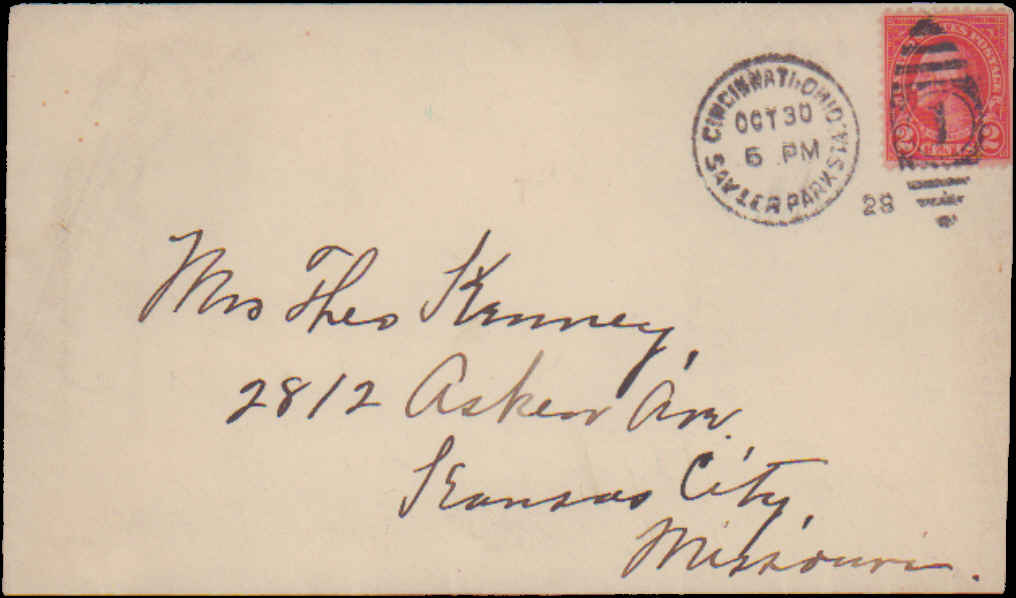 CINCINNATI, OHIO.
OCT 30
5 PM
SAYLER PARK STA.
28
1
UNITED STATES POSTAGE
2 CENTS 2
Mrs Theo Kenney,
2812 Askew Ave.
Kansas City,
Missouri.